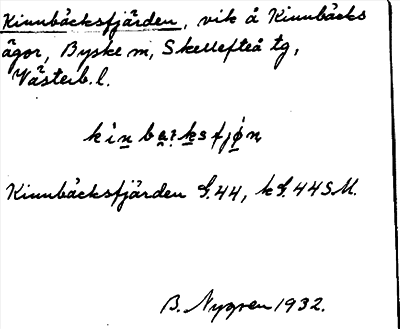 Kinnbäcksfjärden, vik å Kinnbäcks
ägor, Byske m, Skellefteå tg,
Västerb. l.
Kinnbäcksfjärden G.44, kG.44SM.
B. Nygren 1932.